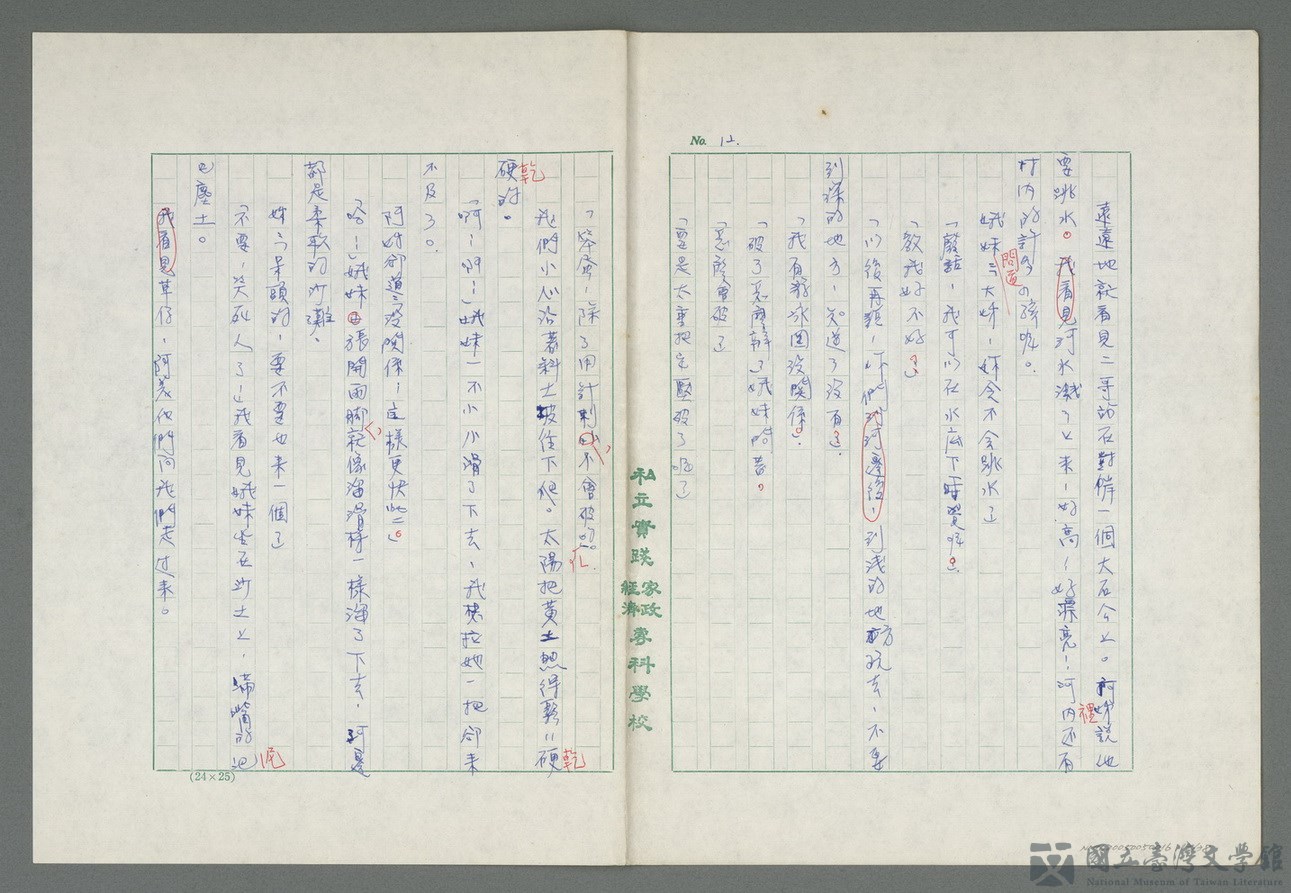 No. 12.
遠遠地就看見二哥站在對岸一個大石今上。阿姊說他
要跳水。我看見河水濺了上來，好高，好漂亮！河內还有
村內的許多小孩呢。
娥妹問道大姊，妳会不会跳水」
「廢話，我可以在水底下睡覺呢。」
「教我好不好。」
「以後再講，你們到河邊後，到淺的地方玩去，不要
到深的地方，知道了沒有。」
「我有游泳圈沒關係。」
「破了怎麼辦」娥妹問著。
「怎麼會破」
「要是太重把它壓破了呢」
「笨蛋，除了用針刺不會破的。」
我們小心沿著斜土坡往下爬。太陽把黃土燃得乾硬
乾硬的。
「啊，啊，」娥妹一不小小滑了下去，我想拉她一把卻來
不及了。
阿姊卻道「沒關係，這樣更快些」。
「哈，」娥妹張開兩腳就像溜滑梯一樣溜了下去，河邊
都是柔軟的沙灘、
妹今呆頭的，要不要也来一個」
「不要，笑死人了」我看見娥妹坐在沙土上，滿嘴的泥
巴塵土。
我看見草仔，阿美他們向我們走过来。
(24×25)
私立實踐家政經濟專科學校
國立臺灣文學館
National Museum of Taiwan Literature